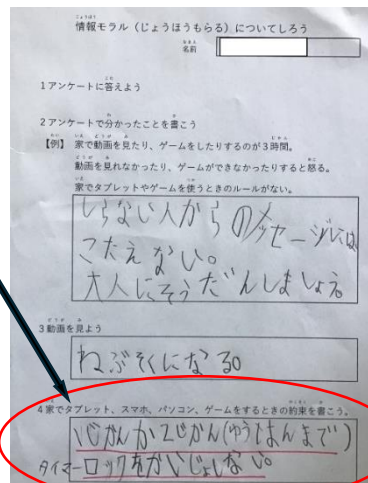 じょうほう
情報モラル（じょうほうもらる）についてしろう
なまえ
名前
こた
1アンケートに答えよう
わ　か
2アンケートで分かったことを書こう
れい　いえ　どうが　み　じかん
【例】 家で動画を見たり、ゲームをしたりするのが3時間。
どうが　み　おこ
動画を見れなかったり、ゲームができなかったりすると怒る。
いえ　つか
家でタブレットやゲームを使うときのルールがない。
しらない人からのメッセージには
こたえない。
大人にそうだんしましょえ
どうが　み
3動画を見よう
ねぶそくになる。
いえ　やくそく　か
4家でタブレット、スマホ、パソコン、ゲームをするときの約束を書こう。
1じかんか2じかん(ゆうはんまで)
タイマーロックをかいじょしない。